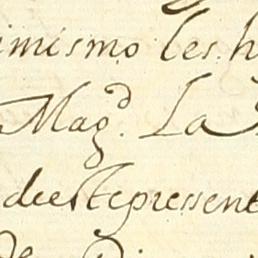 imismo les h
Magd. La
deestepressent